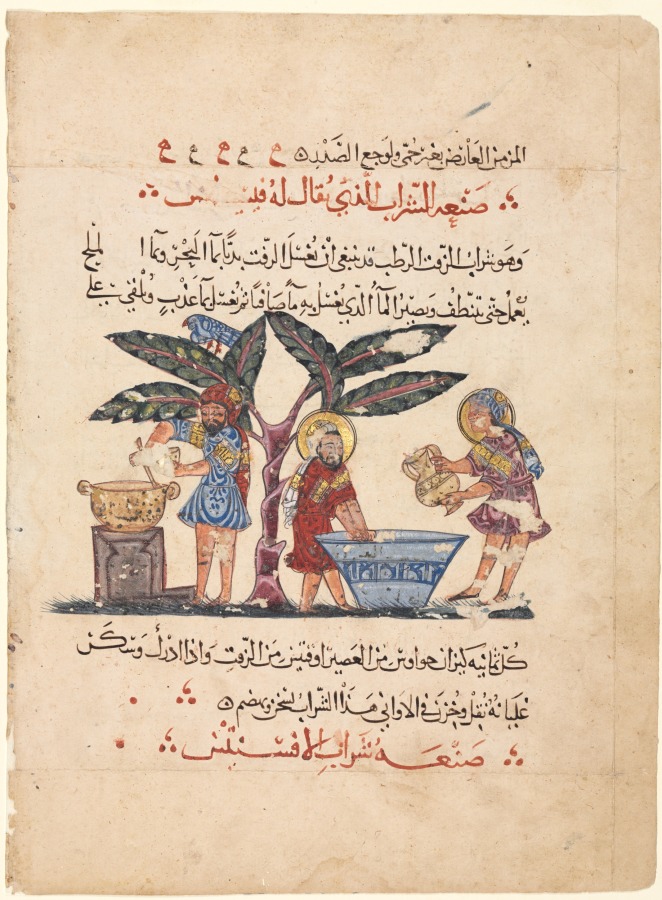 المزمن العارض بغير حمى ولوجع الصدر
صنعه الشراب الذي يقال له
وهو شراب الزفت الرطب قد ينبغي أن يغسل الزفت بديّا بماء البحر وبماء الملح
يعمل حتى تنظف ويصير الماء الذي يغسل به ماء صافيا ثم يغسل بماء عذب ويلقى على
كل ثمانيه كيزان من العصير اوقيتين من الزفت واذا ادرك وسكن
غليانه نقل وخزن في الاواني هذا الشراب يسخن ويهضم
صنعة شراب الافسنتين